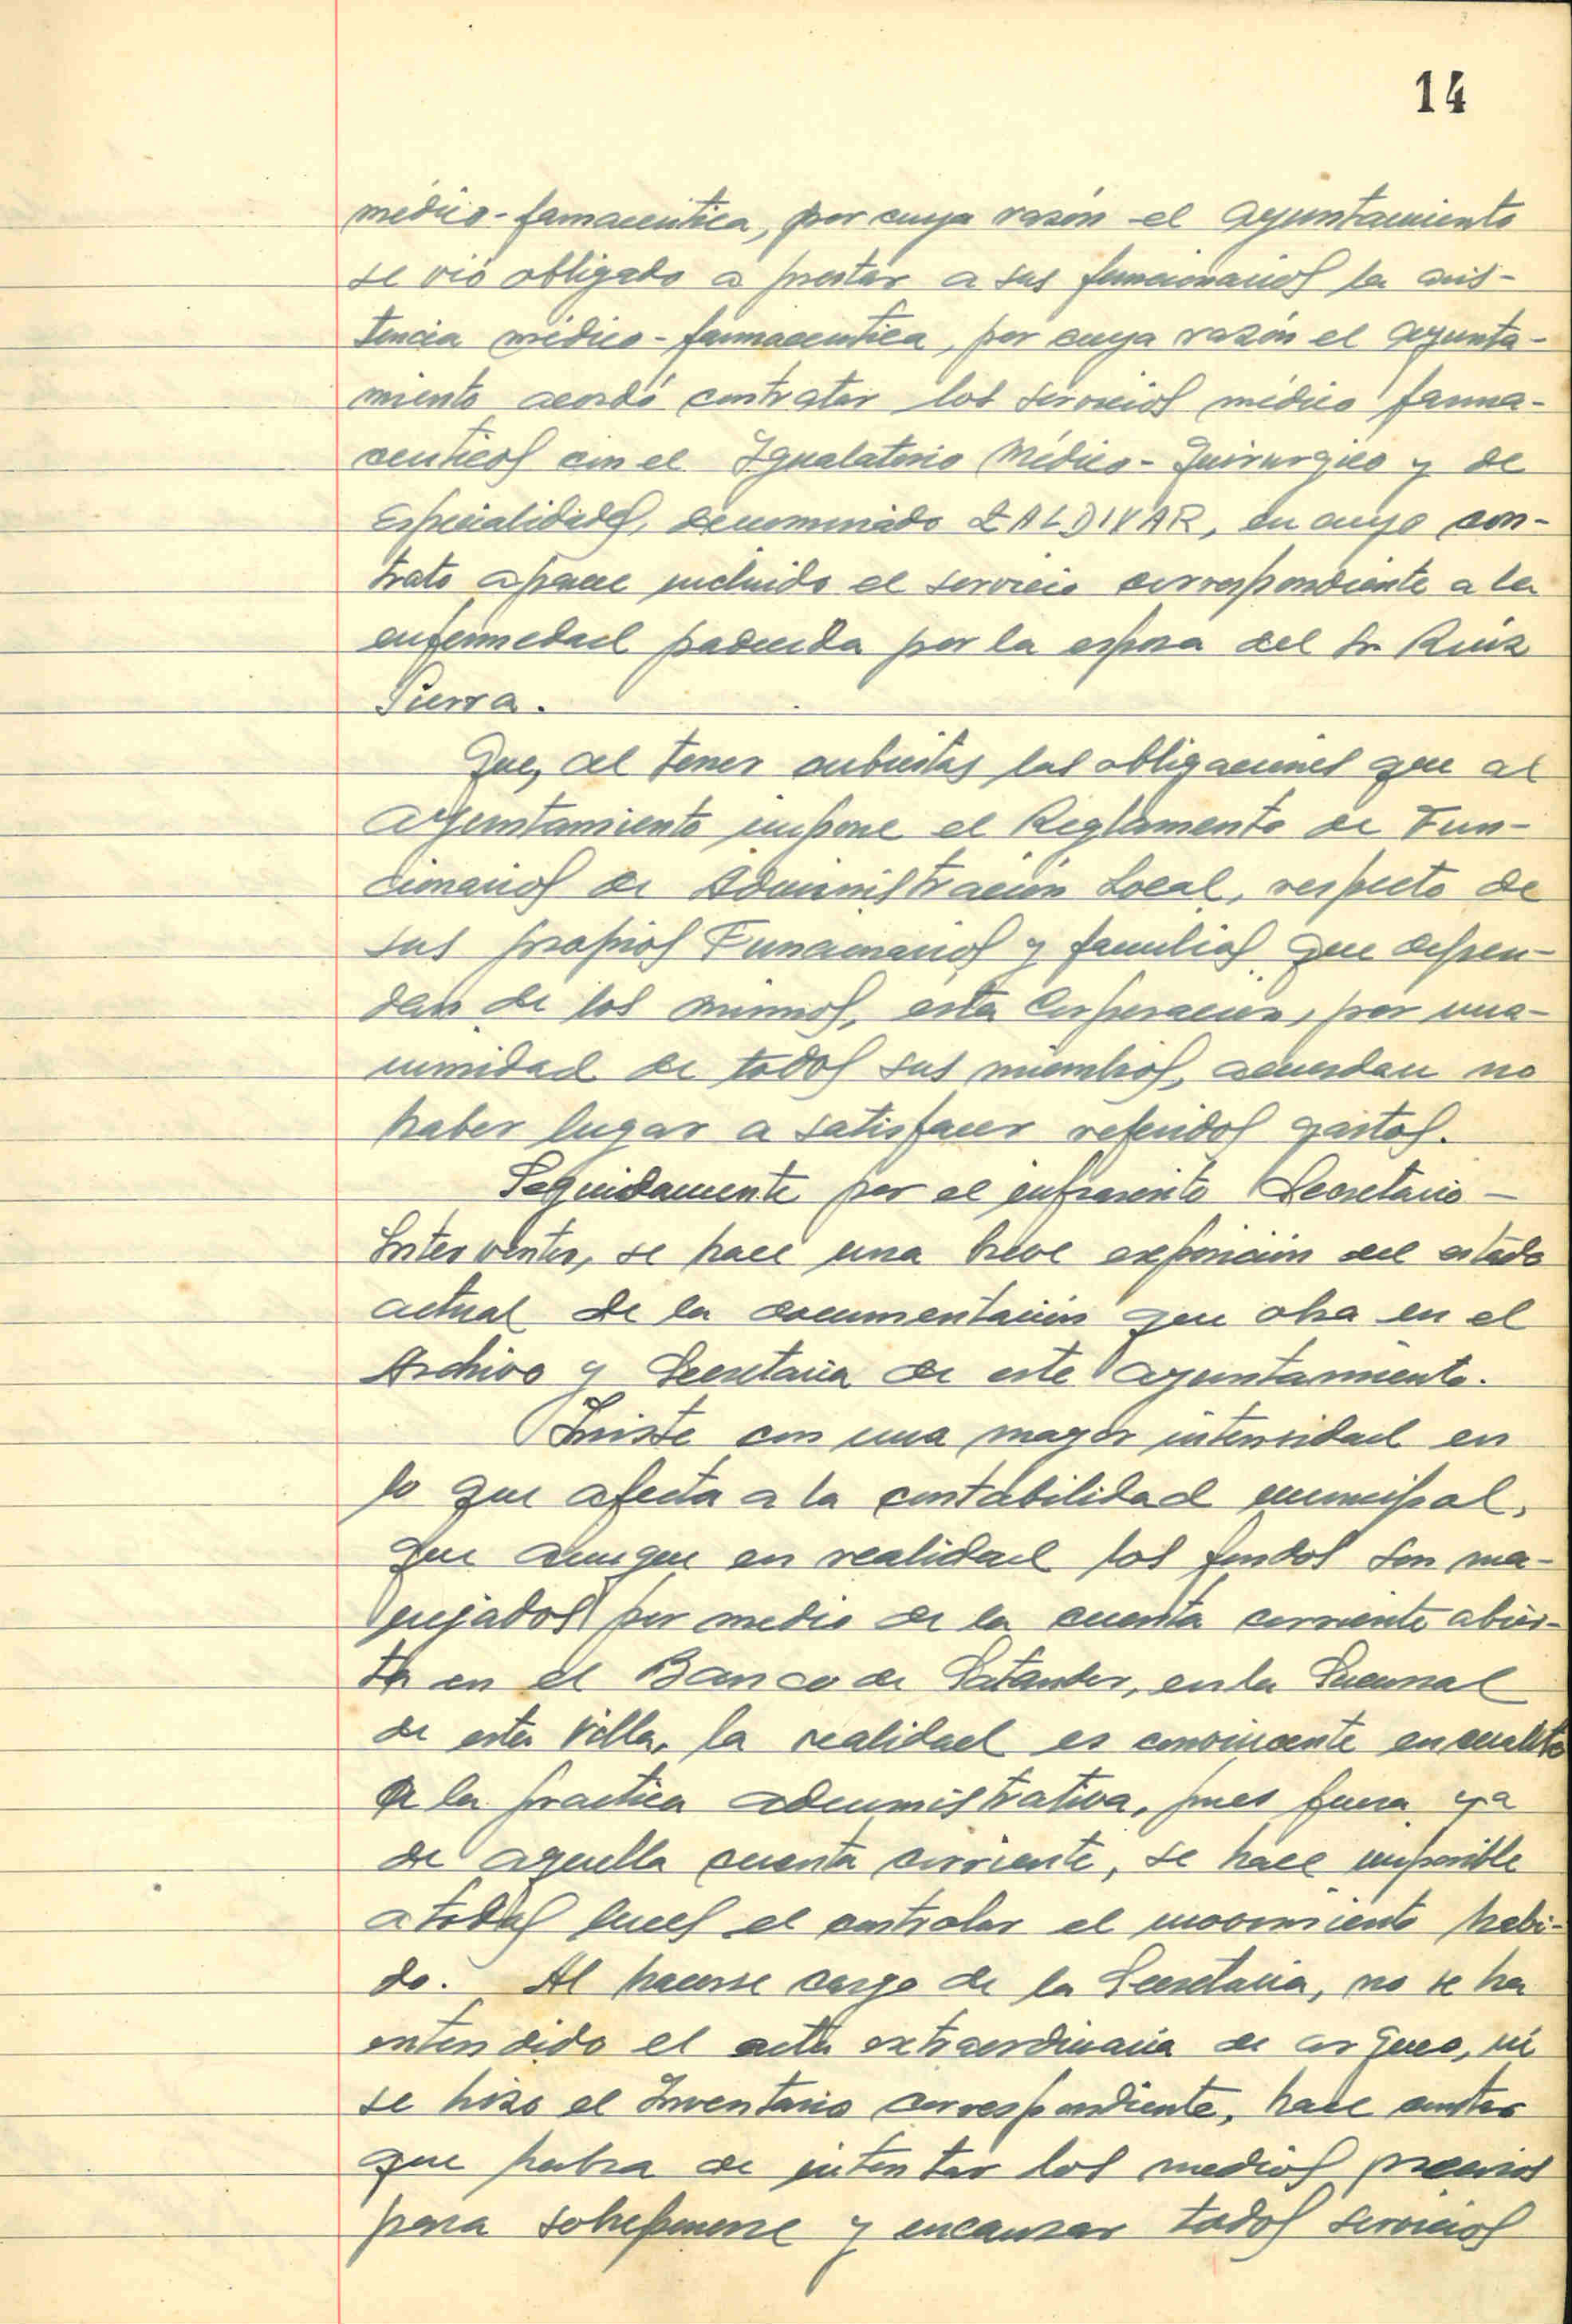 14
médico-famaceutica, por cuya razón el Ayuntamiento
se vió obligado a prestar a sus funcionarios la asis-
tencia médico-farmaceutica, por cuya razón el Ayunta-
miento acordó contratar los servicios médico farma-
ceuticos con el Igualatorio Médico-Quirurgico y de
Especialidades, denominado ZALDIVAR, en cuyo con-
trato aparece incluido el servicio correspondiente a la
enfermedad padecida por la esposa del Sr. Ruiz
Sierra.
Que, al tener cubiertas las obligaciones que al
Ayuntamiento impone el Reglamento de Fun-
cionarios de Administración Local, respecto de
sus propios Funcionarios y familias que depen-
dan de los mismos, esta Corporación, por una-
nimidad de todos sus miembros, acuerdan no
haber lugar a satisfacer referidos gastos.
Seguidamente por el infrascrito Secretario-
Interventor, se hace una breve exposición del estado
actual de la documentación que obra en el
Archivo y Secretaria de este Ayuntamiento.
Insiste con una mayor intensidad en
lo que afecta a la contabilidad municipal,
que aunque en realidad los fondos son ma-
nejados por medio de la cuenta corriente abier-
ta en el Banco de Satander, en la Sucursal
de esta Villa, la realidad es convincente en cuanto
a la practica administrativa, pues fuera ya
de aquella cuenta corriente, se hace imposible
a todas luces el controlar el movimiento habi-
do. Al hacerse cargo de la Secretaria, no se ha
extendido el acta extraordinaria de arqueo, ni
se hizo el Inventario correspondiente, hace constar
que habra de intentar los medios precisos
para sobreponerse y encauzar todos servicios